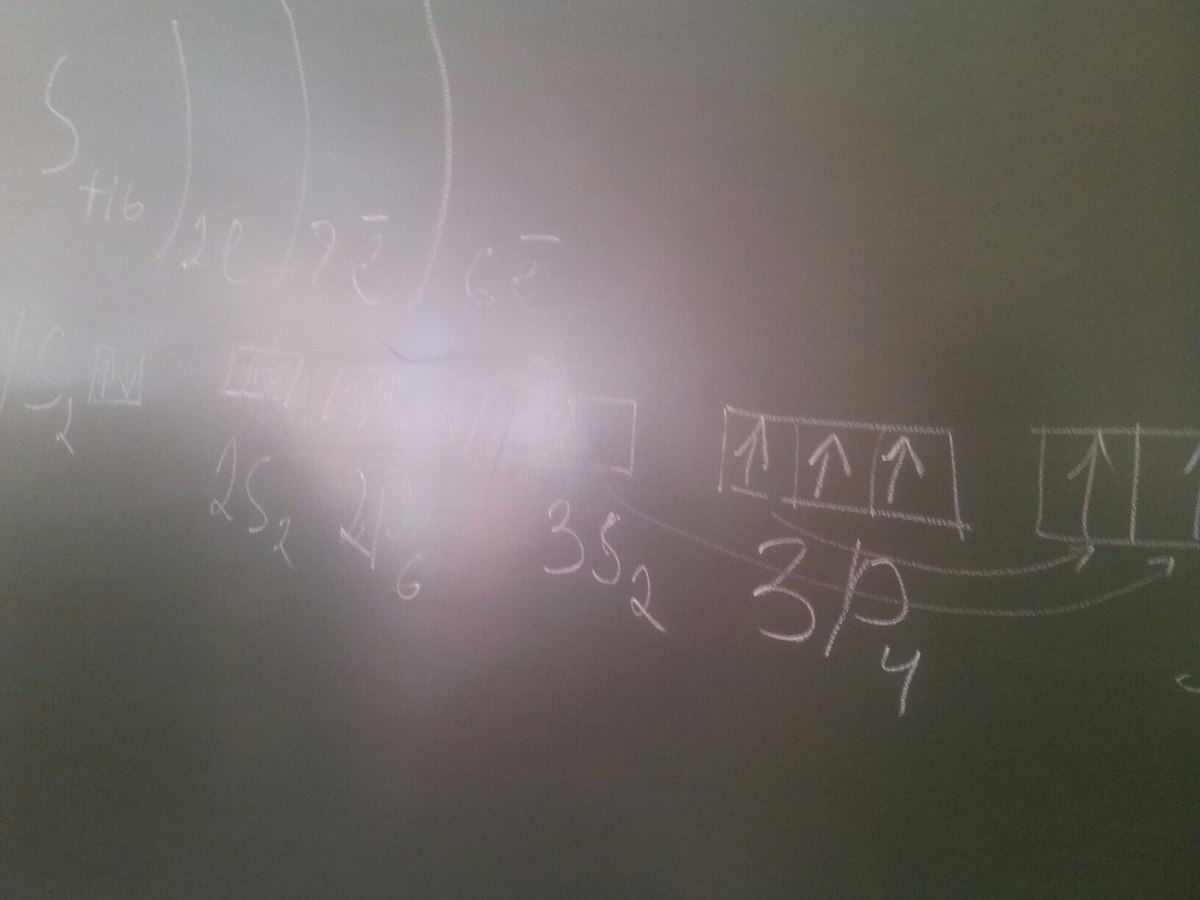 S +16 ) 2e ) 8ē ) 6ē
1S2 2S2 2p6 3S2 3p4